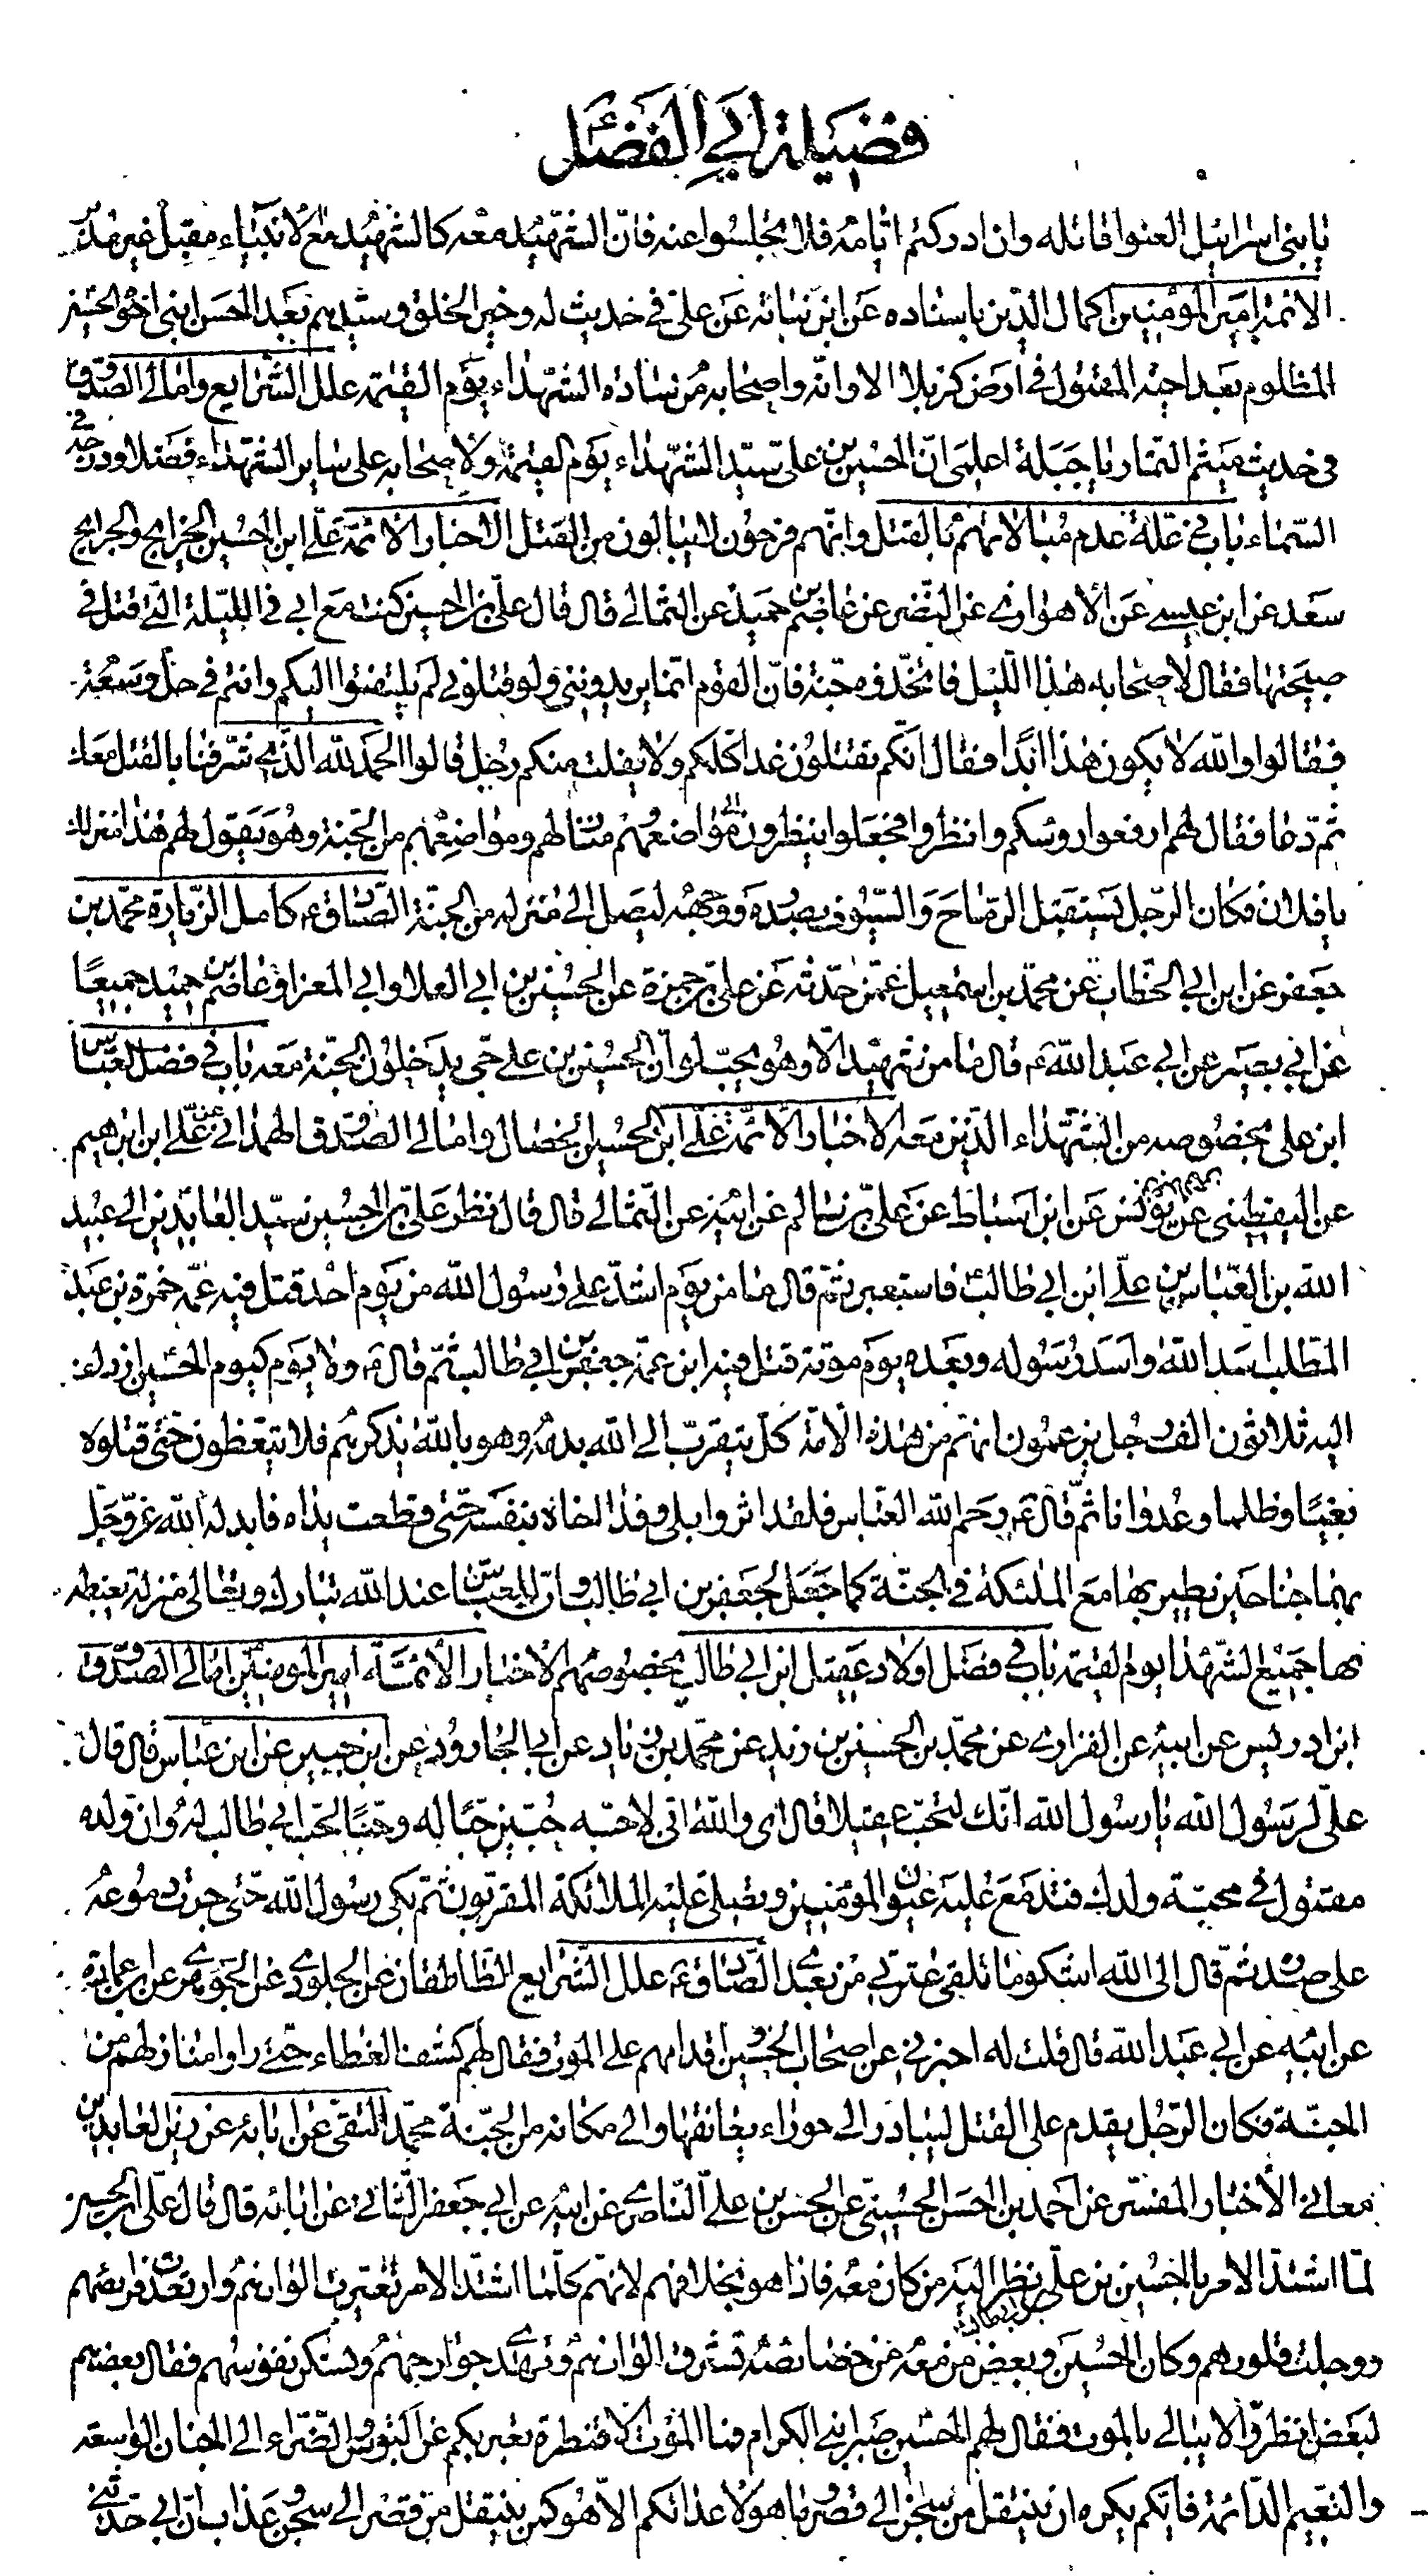 فضيلة ابي الفضل
يا بني اسرائيل العنوا قاتله وان ادركتم ايامه فلا تجلسوا عنه فان الشهيد معه كالشهيد مع الانبياء مقبل غير مدبر
الائمة امير المؤمنين اكمال الدين باسناده عن ابن نباته عن علي في حديث له وخير الخلق وسيدهم بعد الحسن ابني اخوه الحسين
المظلوم بعد اخيه المقتول في ارض كربلا الا وانه واصحابه من سادة الشهداء يوم القيمة علل الشرايع وامالي الصدوق
في حديث ميثم التمار يا جبلة اعلمي ان الحسين بن علي سيد الشهداء يوم القيمة ولاصحابه على ساير الشهداء فضلا ودرجة في
السماء باب في علة عدم مبالاتهم بالقتل وانهم فرحون لا يبالون من القتل الاخبار الائمة علي ابن الحسين الخرايج والجرايج
سعد عن ابن عيسى عن الاهوازي عن النضر عن عاصم بن حميد عن الثمالي قال قال علي بن الحسين كنت مع ابي في الليلة التي قتل في
صبيحتها فقال لاصحابه هذا الليل فاتخذوه جنة فان القوم انما يريدونني ولو قتلوني لم يلتفتوا اليكم وانتم في حل وسعة
فقالوا والله لا يكون هذا ابدا فقال انكم تقتلون غدا كلكم ولا يفلت منكم رجل قالوا الحمد لله الذي شرفنا بالقتل معك
ثم دعا فقال لهم ارفعوا رؤسكم وانظروا فجعلوا ينظرون الى مواضعهم منازلهم ومواضعهم من الجنة وهو يقول لهم هذا منزلك
يا فلان فكان الرجل يستقبل الرماح والسيوف بصدره ووجهه ليصل الى منزله من الجنة الصادق ع كامل الزيارة محمد بن
جعفر عن ابن ابي الخطاب عن محمد بن اسمعيل عمن حدثه عن علي بن حمزة عن الحسين بن ابي العلا وابي المعزا وعاصم بن حميد جميعا
عن ابي بصير عن ابي عبد الله ع قال ما من شهيد الا وهو يحب لو ان الحسين بن علي حي يدخلون الجنة معه باب في فضل العباس
ابن علي بخصوصه من الشهداء الذين معه الاخبار الائمة علي ابن الحسين الخصال وامالي الصدوق الهمداني عن علي ابن ابرهيم
عن اليقطيني عن يونس عن ابن اسباط عن علي بن سالم عن ابيه عن الثمالي قال قال نظر علي بن الحسين سيد العابدين الى عبيد
الله بن العباس بن علي ابن ابي طالب فاستعبر ثم قال ما من يوم اشد على رسول الله من يوم احد قتل فيه عمه حمزة بن عبد
المطلب اسد الله واسد رسوله وبعده يوم موتة قتل فيه ابن عمه جعفر بن ابي طالب ثم قال ع ولا يوم كيوم الحسين ازدلف
اليه ثلاثون الف رجل يزعمون انهم من هذه الامة كل يتقرب الى الله بدمه وهو بالله يذكرهم فلا يتعظون حتى قتلوه
بغيا وظلما وعدوانا ثم قال ع رحم الله العباس فلقد اثر وابلى وفدا اخاه بنفسه حتى قطعت يداه فابدله الله عز وجل
بهما جناحين يطير بها مع الملئكة في الجنة كما جعل لجعفر بن ابي طالب وان للعباس عند الله تبارك وتعالى منزلة يغبطه
بها جميع الشهدا يوم القيمة باب في فضل اولاد عقيل ابن ابي طالب بخصوصهم الاخبار الائمة امير المومنين امالي الصدوق
ابن ادريس عن ابيه عن الفزاري عن محمد بن الحسين بن زيد عن محمد بن زياد عن ابي الجارود عن ابن جبير عن ابن عباس قال قال
علي لرسول الله يا رسول الله انك لتحب عقيلا قال اي والله اني لاحبه حبين حبا له وحبا لحب ابي طالب له وان ولده
مقتول في محبة ولدك فتدمع عليه عيون المؤمنين وتصلي عليه الملائكة المقربون ثم بكى رسول الله حتى جرت دموعه
على صدره ثم قال الى الله اشكو ما تلقى عترتي من بعدي الصادق ع علل الشرايع الطالقاني عن الجلودي عن الجوهري عن ابن عمارة
عن ابيه عن ابي عبد الله قال قلت له اخبرني عن اصحاب الحسين واقدامهم على الموت فقال لهم كشف الغطاء حتى راوا منازلهم من
الجنة فكان الرجل يقدم على القتل ليبادر الى حوراء يعانقها والى مكانه من الجنة محمد التقي عن ابائه عن زين العابدين
معاني الاخبار المفسر عن احمد بن الحسن الحسيني عن الحسن بن علي الناصري عن ابيه عن ابي جعفر الثاني عن ابائه قال قال علي ابن الحسين
لما اشتد الامر بالحسين بن علي بن ابي طالب نظر اليه من كان معه فاذا هو بخلافهم لانهم كلما اشتد الامر تغيرت الوانهم وارتعدت فرايصهم
ووجلت قلوبهم وكان الحسين وبعض من معه من خصائصه تشرق الوانهم وتهدي جوارحهم وتسكن نفوسهم فقال بعضهم
لبعض انظروا لا يبالي بالموت فقال لهم الحسين صبرا بني الكرام فما الموت الا قنطرة يعبر بكم عن البؤس والضراء الى الجنان الواسعة
والنعيم الدائمة فايكم يكره ان ينتقل من سجن الى قصر وما هو لاعدائكم الا هو كمن ينتقل من قصر الى سجن وعذاب ان ابي حدثني